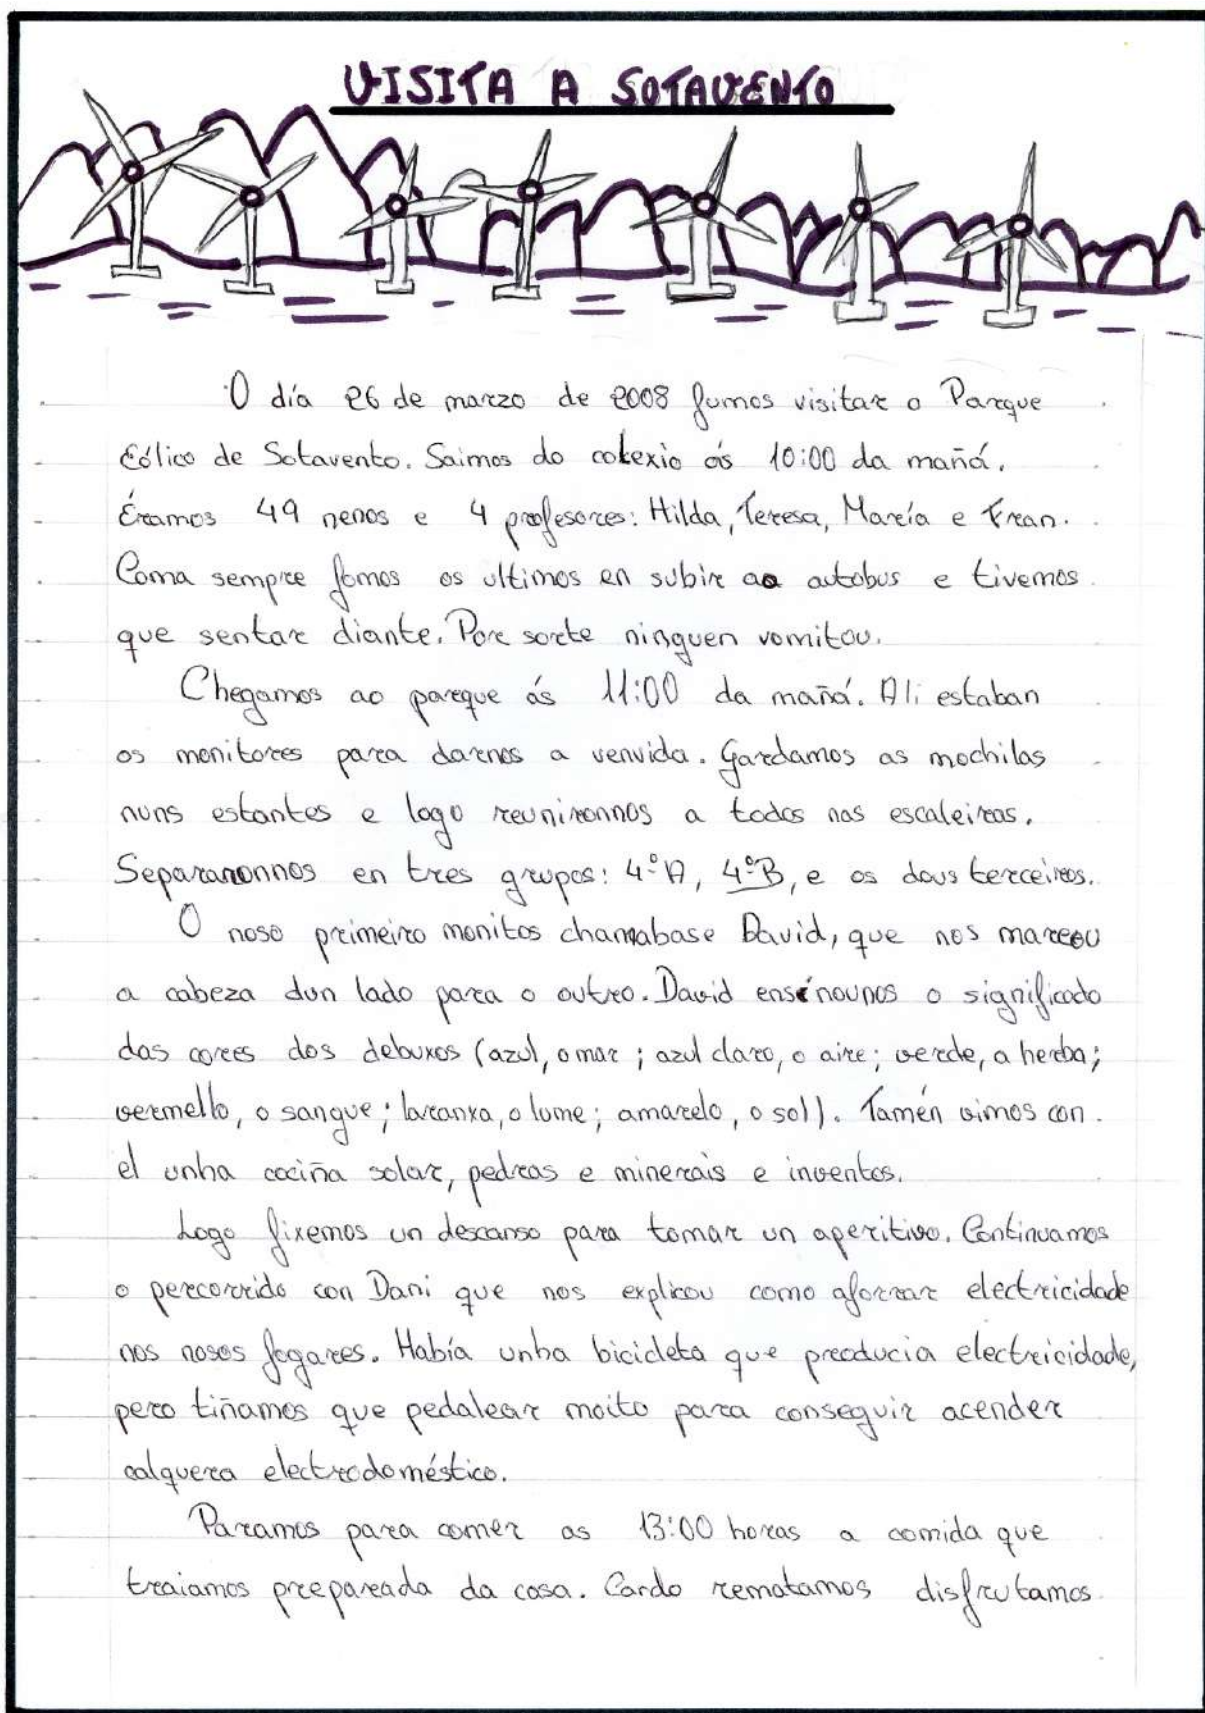 VISITA A SOTAVENTO
O día 26 de marzo de 2008 fumos visitar o Parque
Eólico de Sotavento. Saimos do colexio ás 10:00 da mañá.
Éramos 49 nenos e 4 profesores: Hilda, Teresa, María e Fran.
Coma sempre fomos os ultimos en subir ao autobus e tivemos
que sentar diante. Por sorte ninguen vomitou.
Chegamos ao parque ás 11:00 da mañá. Ali estaban
os monitores para darnos a venvida. Gardamos as mochilas
nuns estantes e logo reunironnos a todos nas escaleiras.
Separaronnos en tres grupos: 4ºA, 4ºB, e os dous terceiros.
O noso primeiro monitos chamabase David, que nos mareou
a cabeza dun lado para o outro. David ensinounos o significado
das cores dos debuxos (azul, o mar; azul claro, o aire; verde, a herba;
vermello, o sangue; laranxa, o lume; amarelo, o sol). Tamén vimos con
el unha cociña solar, pedras e minerais e inventos.
Logo fixemos un descanso para tomar un aperitivo. Continuamos
o percorrido con Dani que nos explicou como aforrar electricidade
nos nosos fogares. Había unha bicicleta que producia electricidade,
pero tiñamos que pedalear moito para conseguir acender
calquera electrodoméstico.
Paramos para comer as 13:00 horas a comida que
traiamos preparada da casa. Cando rematamos disfrutamos